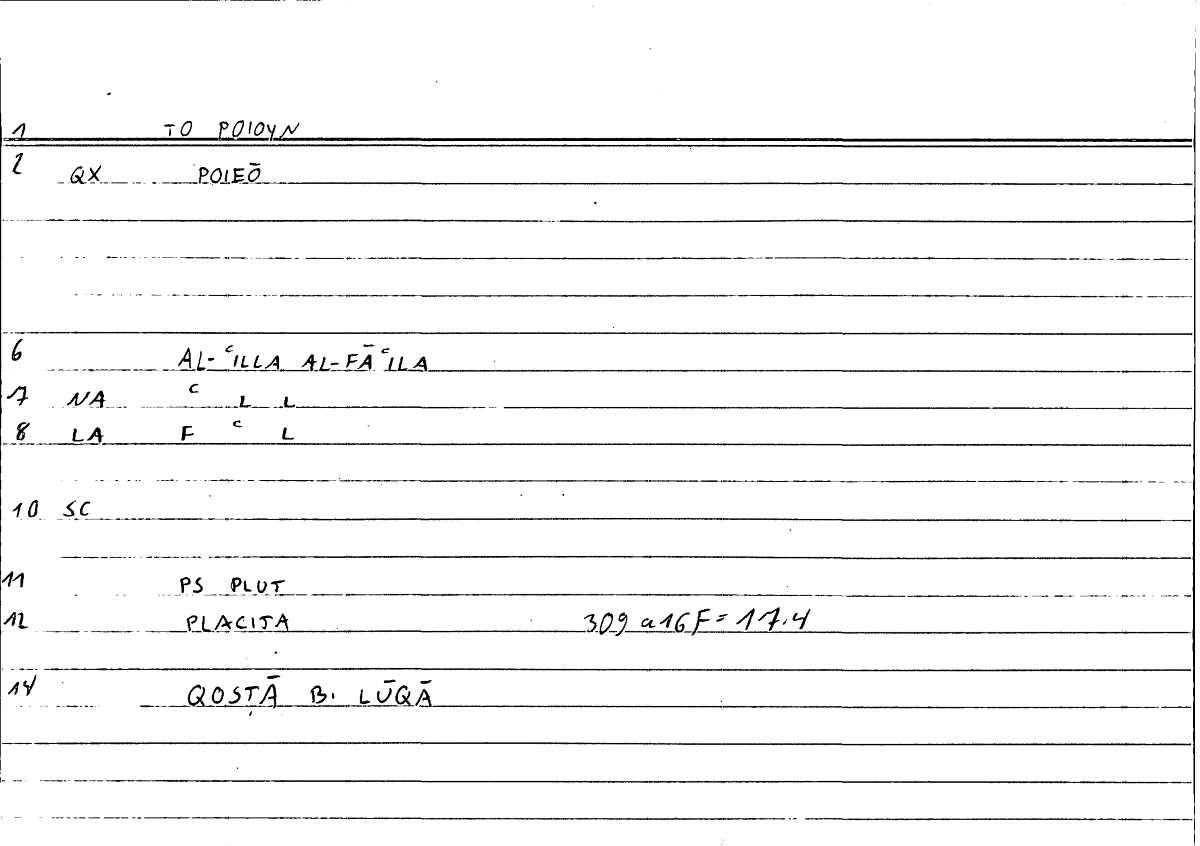 1 TO POIOYN
2 QX POIEŌ
6 AL-ʿILLA AL-FĀʿILA
7 NA ʿ L L
8 LA F ʿ L
10 SC
11 PS PLUT
12 PLACITA 309 a16F=17.4
14 QOSṬĀ B. LŪQĀ